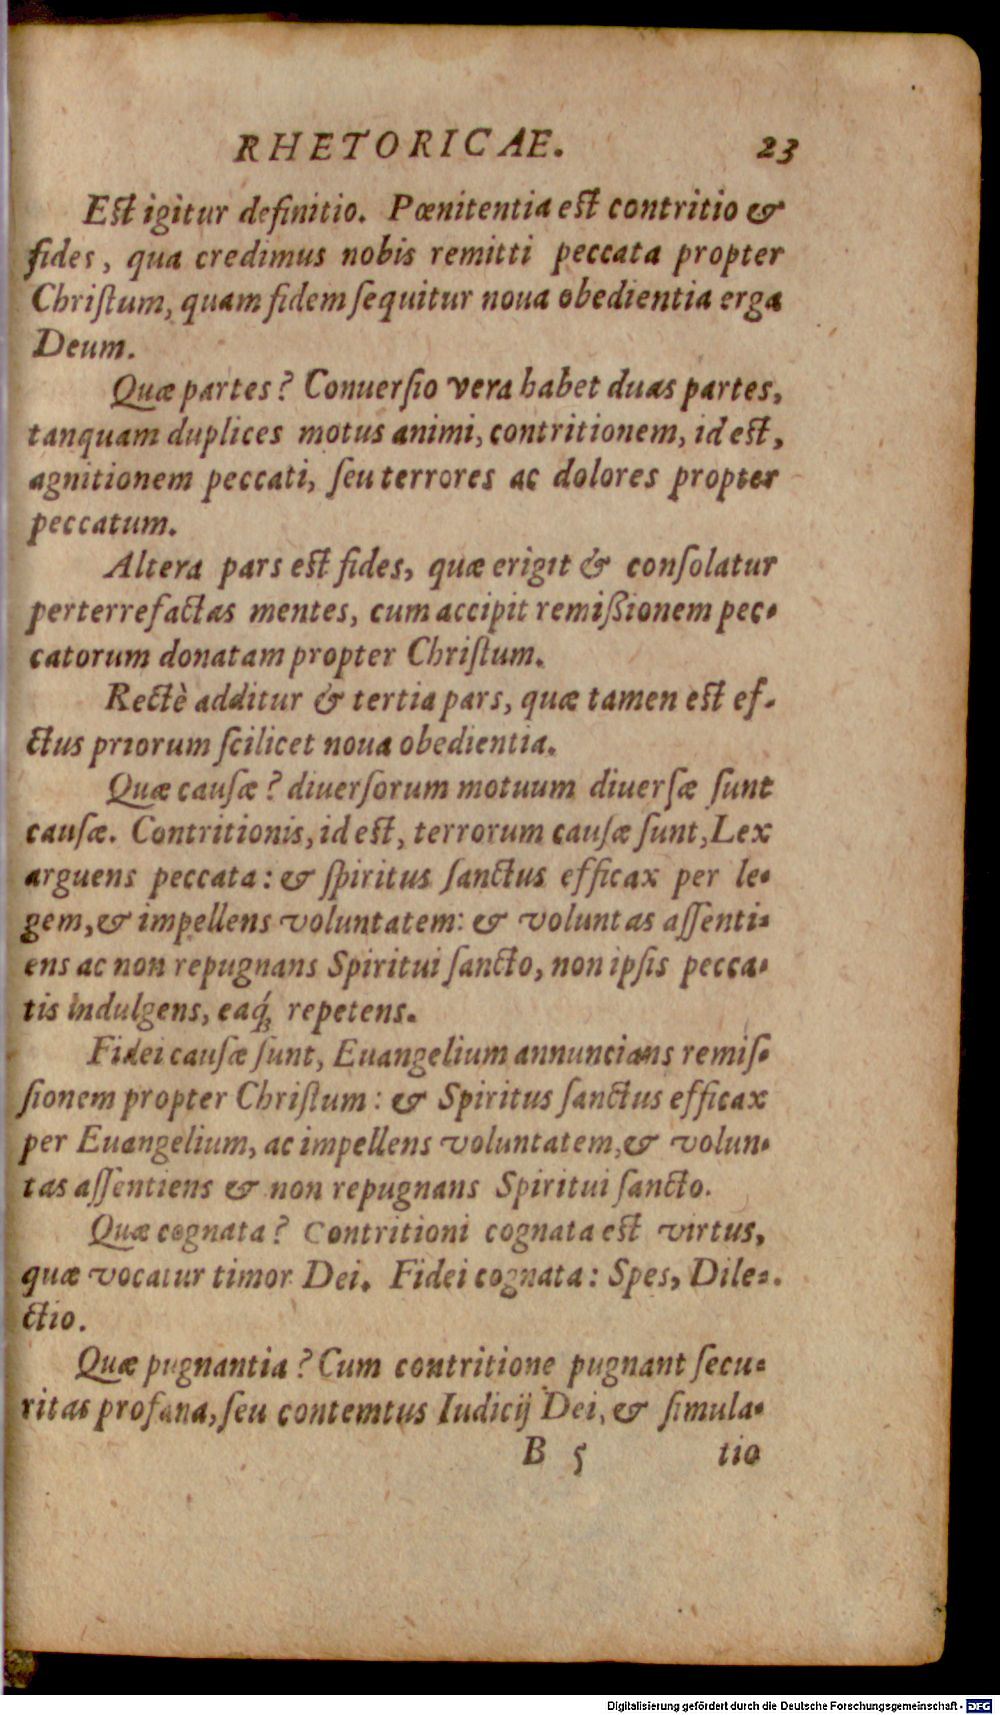 RHETORICAE. 23
Est igitur definitio. Pœnitentia est contritio &
fides, qua credimus nobis remitti peccata propter
Chriſtum, quam fidem ſequitur noua obedientia erga
Deum.
Quæ partes? Conuerſio vera habet duas partes,
tanquam duplices motus animi, contritionem, id est,
agnitionem peccati, ſeu terrores ac dolores propter
peccatum.
Altera pars est fides, quæ erigit & conſolatur
perterrefactas mentes, cum accipit remißionem pec-
catorum donatam propter Chriſtum.
Rectè additur & tertia pars, quæ tamen est ef-
ctus priorum ſcilicet noua obedientia.
Quæ cauſæ? diuerſorum motuum diuerſæ ſunt
cauſæ. Contritionis, id est, terrorum cauſæ ſunt, Lex
arguens peccata: & ſpiritus ſanctus efficax per le-
gem, & impellens voluntatem: & voluntas aſſenti-
ens ac non repugnans Spiritui ſancto, non ipſis pecca-
tis indulgens, eaq́; repetens.
Fidei cauſæ ſunt, Euangelium annuncians remiſ-
ſionem propter Chriſtum: & Spiritus ſanctus efficax
per Euangelium, ac impellens voluntatem, & volun-
tas aſſentiens & non repugnans Spiritui ſancto.
Quæ cognata? Contritioni cognata est virtus,
quæ vocatur timor Dei. Fidei cognata: Spes, Dile-
ctio.
Quæ pugnantia? Cum contritione pugnant ſecu-
ritas profana, ſeu contemtus Iudicij Dei, & ſimula-
B 5 tio
Digitalisierung gefördert durch die Deutsche Forschungsgemeinschaft - DFG